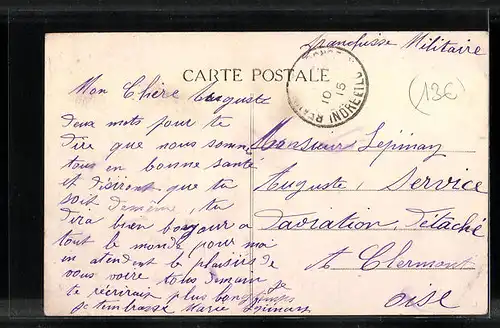 franchisse Militaire
CARTE POSTALE
10
15
(INDRE
(13€)
Mon Chère Auguste
Deux mots pour te
dire que nous somm
tous en bonne santé
et désirent que tu
soit de même, tu
dira bien bonjour a
tout le monde pour moi
en atendent le plaisirs de
vous voire tous demain je
te récrirais plus longtemps
Je t'embrasse Marie Lepinay
Monsieur Lepinay
Auguste, Service
Daviation, Détaché
A Clermont
oise